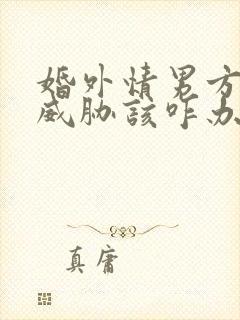 婚外情男方
威胁該咋办
真庸